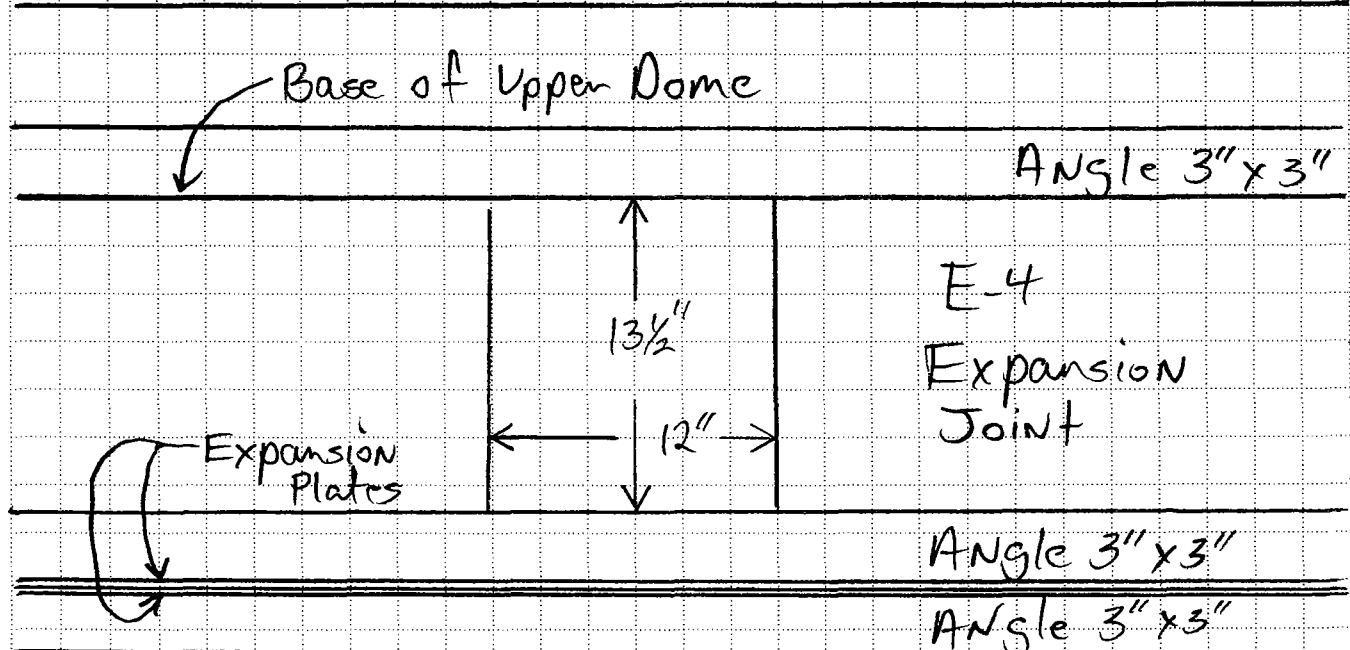 Base of Upper Dome
Angle 3" x 3"
E-4
Expansion
Joint
13½"
12"
Expansion
Plates
Angle 3" x 3"
Angle 3" x 3"